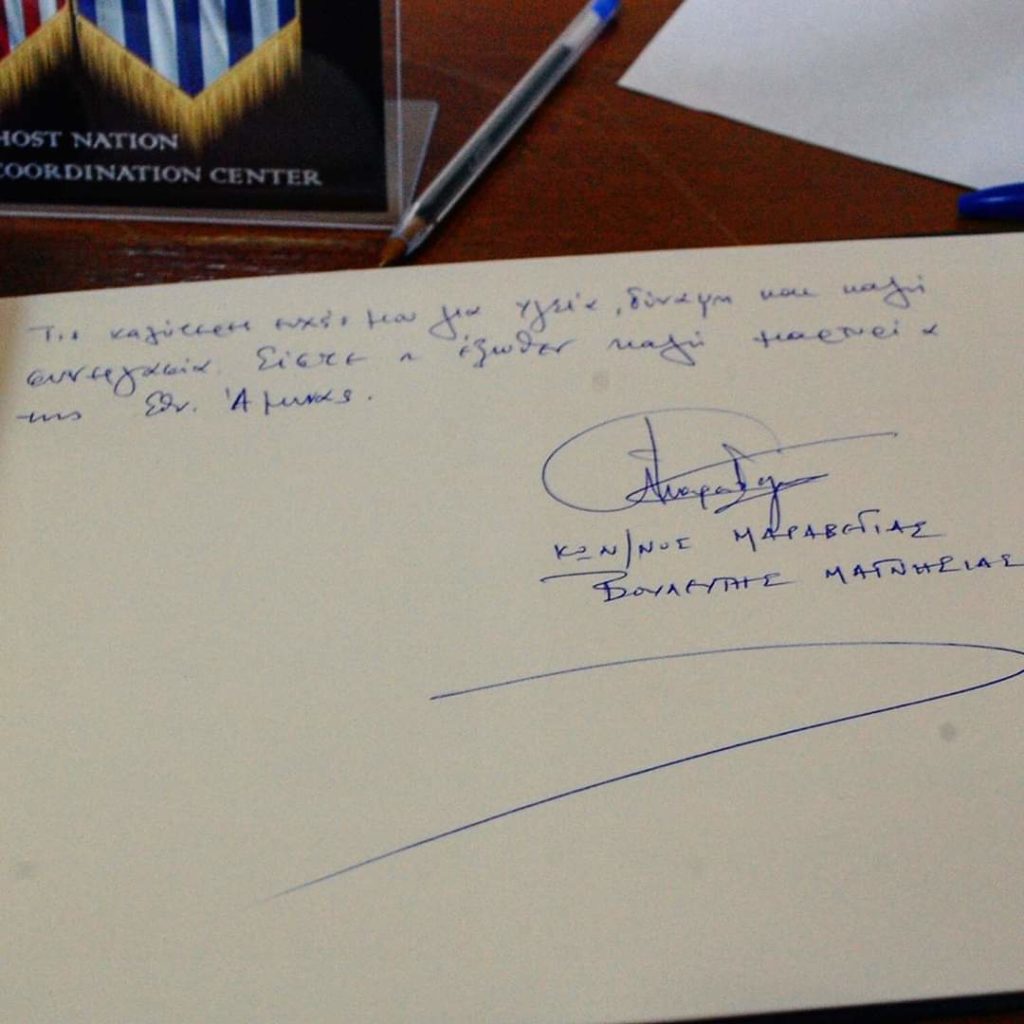 HOST NATION
COORDINATION CENTER
Τις καλύτερες ευχές μου για υγεία, δύναμη και καλή
συνεργασία. Είστε η έξωθεν καλή μαρτυρία
της Εθν. Άμυνας.
ΚΩΝ/ΝΟΣ ΜΑΡΑΒΕΓΙΑΣ
ΒΟΥΛΕΥΤΗΣ ΜΑΓΝΗΣΙΑΣ